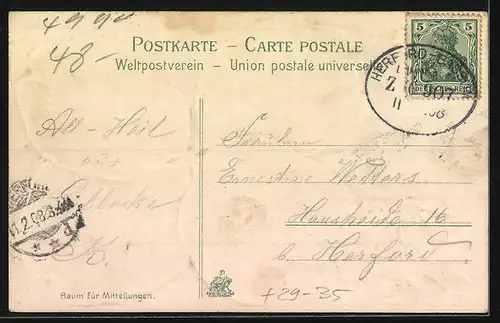 4999
48-
POSTKARTE – CARTE POSTALE
Weltpostverein – Union postale universe
5 5
DEUTSCHES REICH
HERFORD-BASSUM
Z. 907
11 08
All-Heil
aus
Fräulein
Ernestine Wolters
Hausheide 16
b. Herford
11.2.08.8-9V
* *
Raum für Mitteilungen.
+29-35